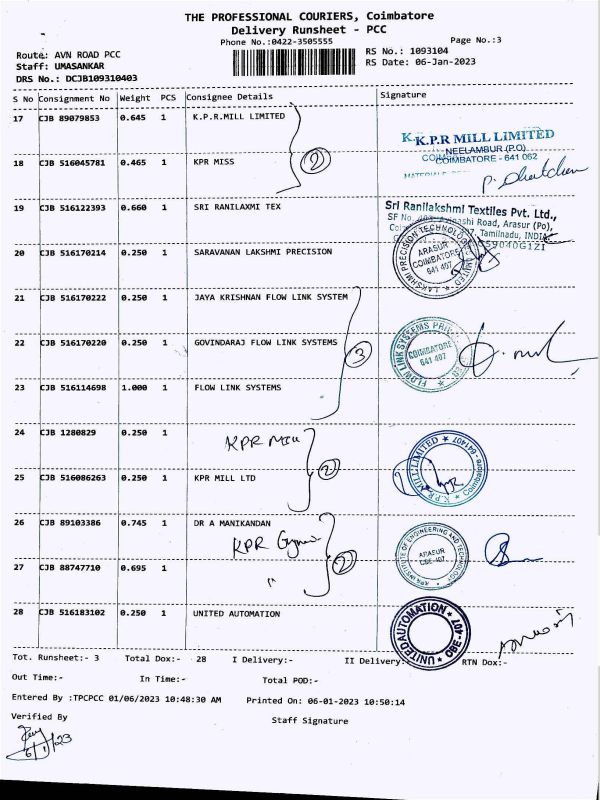 THE PROFESSIONAL COURIERS, Coimbatore
Delivery Runsheet - PCC
Phone No.:0422-3505555 Page No.:3
Route: AVN ROAD PCC RS No.: 1093104
Staff: UMASANKAR RS Date: 06-Jan-2023
DRS No.: DCJB109310403
S No Consignment No Weight PCS Consignee Details Signature
17 CJB 89079853 0.645 1 K.P.R.MILL LIMITED
K.P.R MILL LIMITED
NEELAMBUR (P.O)
COIMBATORE - 641 062
18 CJB 516045781 0.465 1 KPR MISS 2
19 CJB 516122393 0.660 1 SRI RANILAXMI TEX
Sri Ranilakshmi Textiles Pvt. Ltd.,
SF No. Road, Arasur (Po),
Tamilnadu, INDIA
20 CJB 516170214 0.250 1 SARAVANAN LAKSHMI PRECISION
LAKSHMI PRECISION TECHNOLOG
ARASUR
COIMBATORE
641 407
21 CJB 516170222 0.250 1 JAYA KRISHNAN FLOW LINK SYSTEM
22 CJB 516170220 0.250 1 GOVINDARAJ FLOW LINK SYSTEMS 3
FLOW LINK SYSTEMS
COIMBATORE
641 407
23 CJB 516114698 1.000 1 FLOW LINK SYSTEMS
24 CJB 1280829 0.250 1 KPR Mill
25 CJB 516086263 0.250 1 KPR MILL LTD 2
K.P.R. MILL LIMITED 641407 Coimbatore
26 CJB 89103386 0.745 1 DR A MANIKANDAN
KPR
27 CJB 88747710 0.695 1 " 2
KPR INSTITUTE OF ENGINEERING AND TECHNOLOGY
ARASUR
CBE-407
28 CJB 516183102 0.250 1 UNITED AUTOMATION
UNITED AUTOMATION CBE - 407
Tot. Runsheet:- 3 Total Dox:- 28 I Delivery:- II Delivery: RTN Dox:-
Out Time:- In Time:- Total POD:-
Entered By :TPCPCC 01/06/2023 10:48:30 AM Printed On: 06-01-2023 10:50:14
Verified By Staff Signature
6/1/23